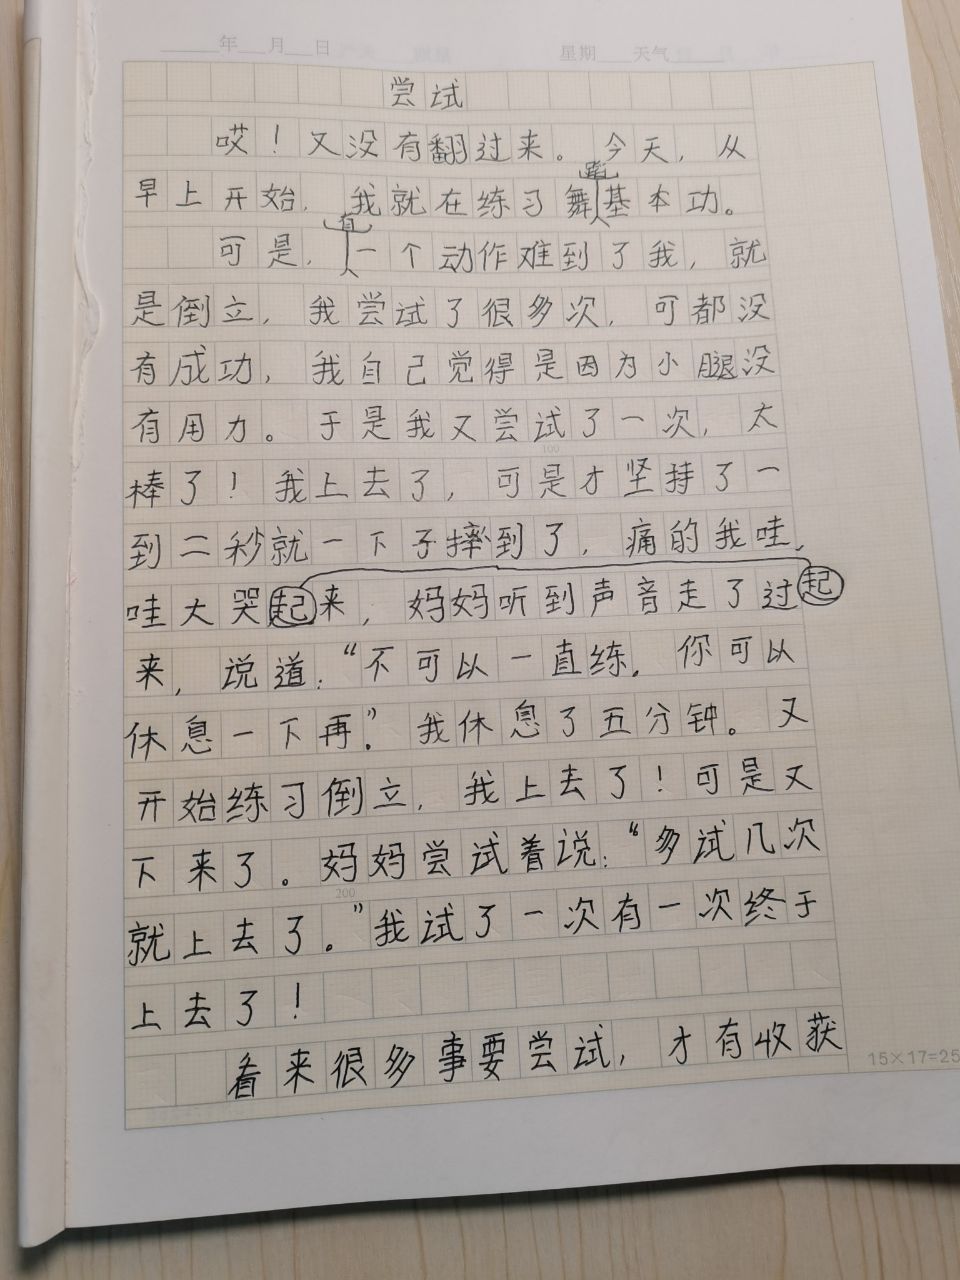 年 月 日 星期 天气
尝试
哎！又没有翻过来。今天，从
早上开始，我就在练习舞蹈基本功。
可是，有一个动作难到了我，就
是倒立，我尝试了很多次，可都没
有成功，我自己觉得是因为小腿没
有用力。于是我又尝试了一次，太
100
棒了！我上去了，可是才坚持了一
到二秒就一下子摔到了，痛的我哇，
哇大哭起来，妈妈听到声音走了过起
来，说道：“不可以一直练，你可以
休息一下再。”我休息了五分钟。又
开始练习倒立，我上去了！可是又
下来了。妈妈尝试着说：“多试几次
200
就上去了。”我试了一次有一次终于
上去了！
看来很多事要尝试，才有收获
15×17=25